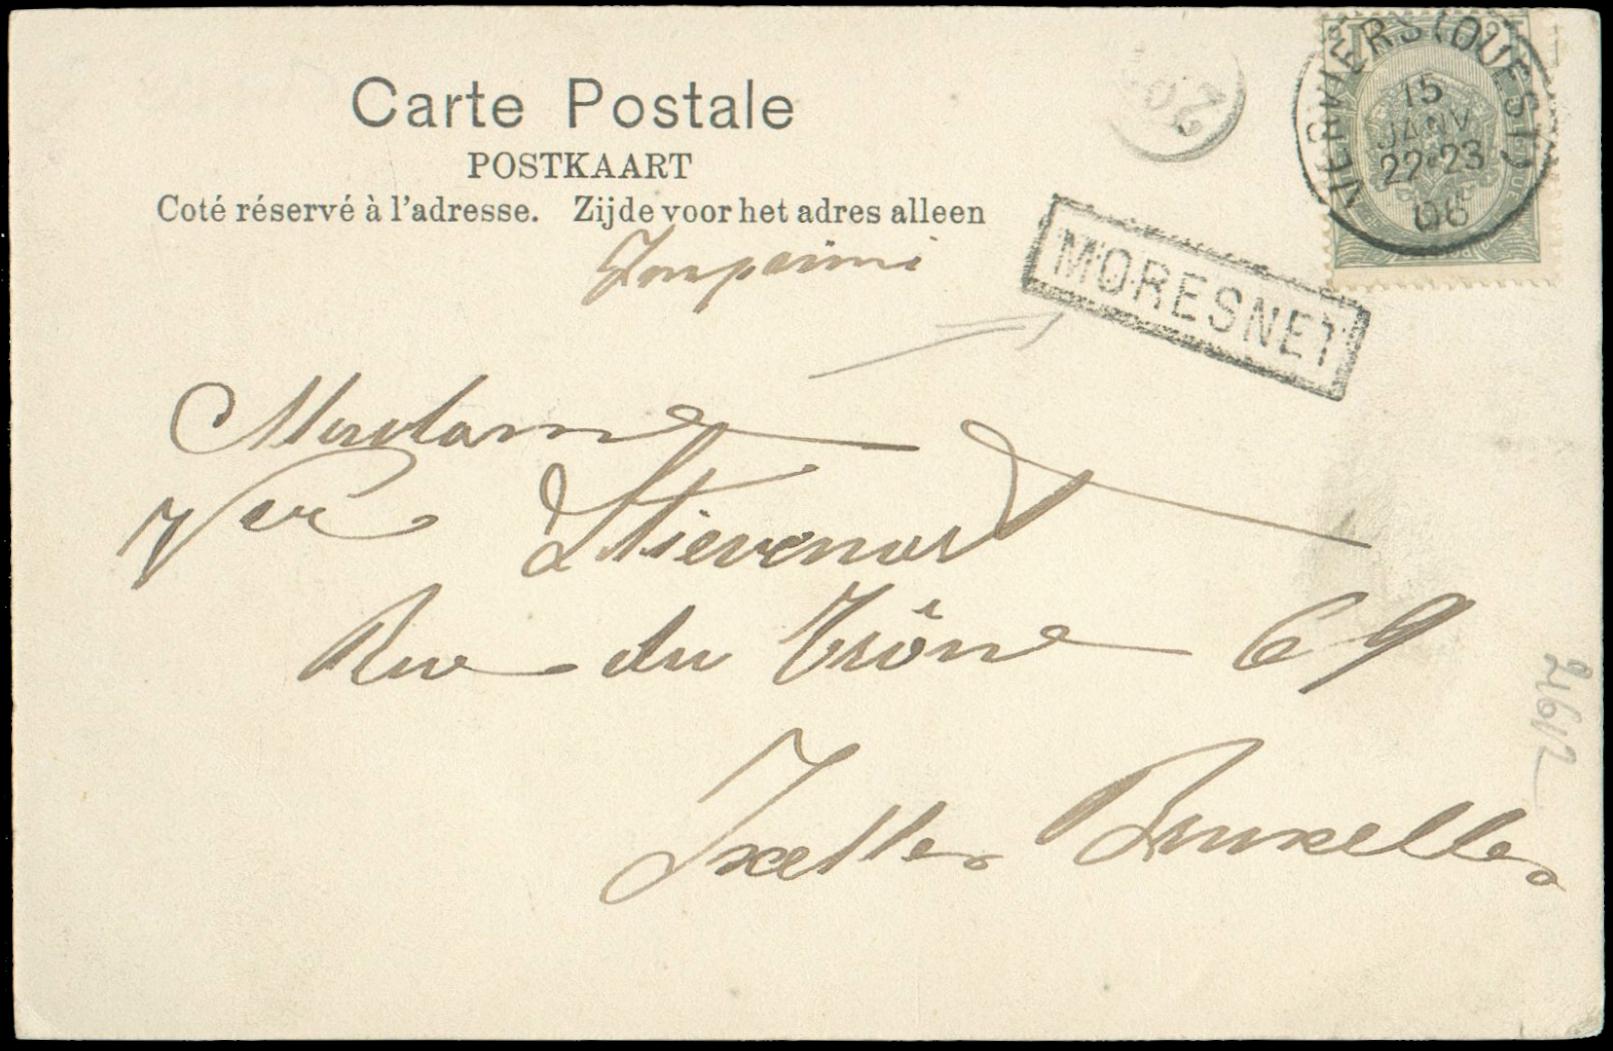 Carte Postale
POSTKAART
Coté réservé à l'adresse. Zijde voor het adres alleen
VERVIERS (OUEST)
15
JANV
22-23
06
MORESNET
Imprimé
Madame
Vve Stievenart
Rue du Trône 69
Ixelles Bruxelles
2612